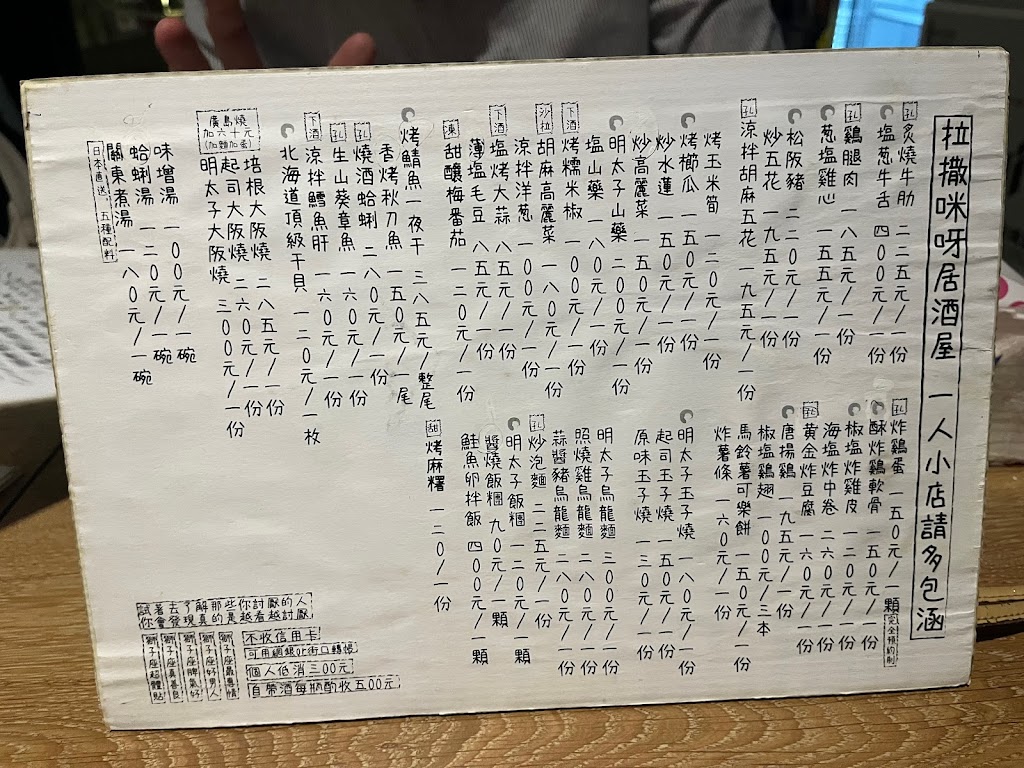 拉撒咪呀居酒屋 一人小店請多包涵
炙燒牛肋 二二五元/一份
塩葱牛舌 四00元/一份
鷄腿肉 一八五元/一份
葱塩鷄心 一五五元/一份
松阪豬 二二0元/一份
炒五花 一九五元/一份
涼拌胡麻五花 一九五元/一份
烤玉米筍 一二0元/一份
烤櫛瓜 一五0元/一份
炒水蓮 一五0元/一份
炒高麗菜 一五0元/一份
明太子山藥 一八0元/一份
塩山藥 一八0元/一份
下酒
烤糯米椒 一00元/一份
沙拉
胡麻高麗菜 一五0元/一份
涼拌洋葱 一00元/一份
下酒
塩烤大蒜 八五元/一份
薄塩毛豆 八五元/一份
凍
甜釀梅番茄 一二0元/一份
烤鯖魚一夜干 三八五元/整尾
香烤秋刀魚 一五0元/一尾
燒酒蛤蜊 二八0元/一份
生山葵章魚 一六0元/一份
下酒
涼拌鱈魚肝 一六0元/一份
北海道頂級干貝 一二0元/一枚
廣島燒
加六十元
(加麵加蛋)
培根大阪燒 二八五元/一份
起司大阪燒 二六0元/一份
明太子大阪燒 三00元/一份
味增湯 一00元/一碗
蛤蜊湯 一二0元/一碗
關東煮湯 一八0元/一碗
日本直送、五種配料
炸鷄蛋 一五0元/一顆
完全預約制
酥炸鷄軟骨 一五0元/一份
椒塩炸鷄皮 一二0元/一份
海塩炸中卷 二六0元/一份
黃金炸豆腐 一六0元/一份
唐揚鷄 一九五元/一份
椒塩鷄翅 一00元/三本
馬鈴薯可樂餅 一五0元/一份
炸薯條 一六0元/一份
明太子玉子燒 一八0元/一份
起司玉子燒 一五0元/一份
原味玉子燒 一三0元/一份
明太子烏龍麵 三00元/一份
照燒雞烏龍麵 二八0元/一份
蒜醬豬烏龍麵 二八0元/一份
炒泡麵 二二五元/一份
明太子飯糰 一二0元/一顆
醬燒飯糰 九0元/一顆
鮭魚卵拌飯 四00元/一顆
甜
烤麻糬 一二0/一份
試著去了解那些你討厭的人
你會發現真的是越看越討厭
不收信用卡
可用網銀or街口轉帳
個人低消三00元
自帶酒每瓶酌收五00元
獅子座最專情
獅子座好男人
獅子座脾氣好
獅子座真善良
獅子座超體貼